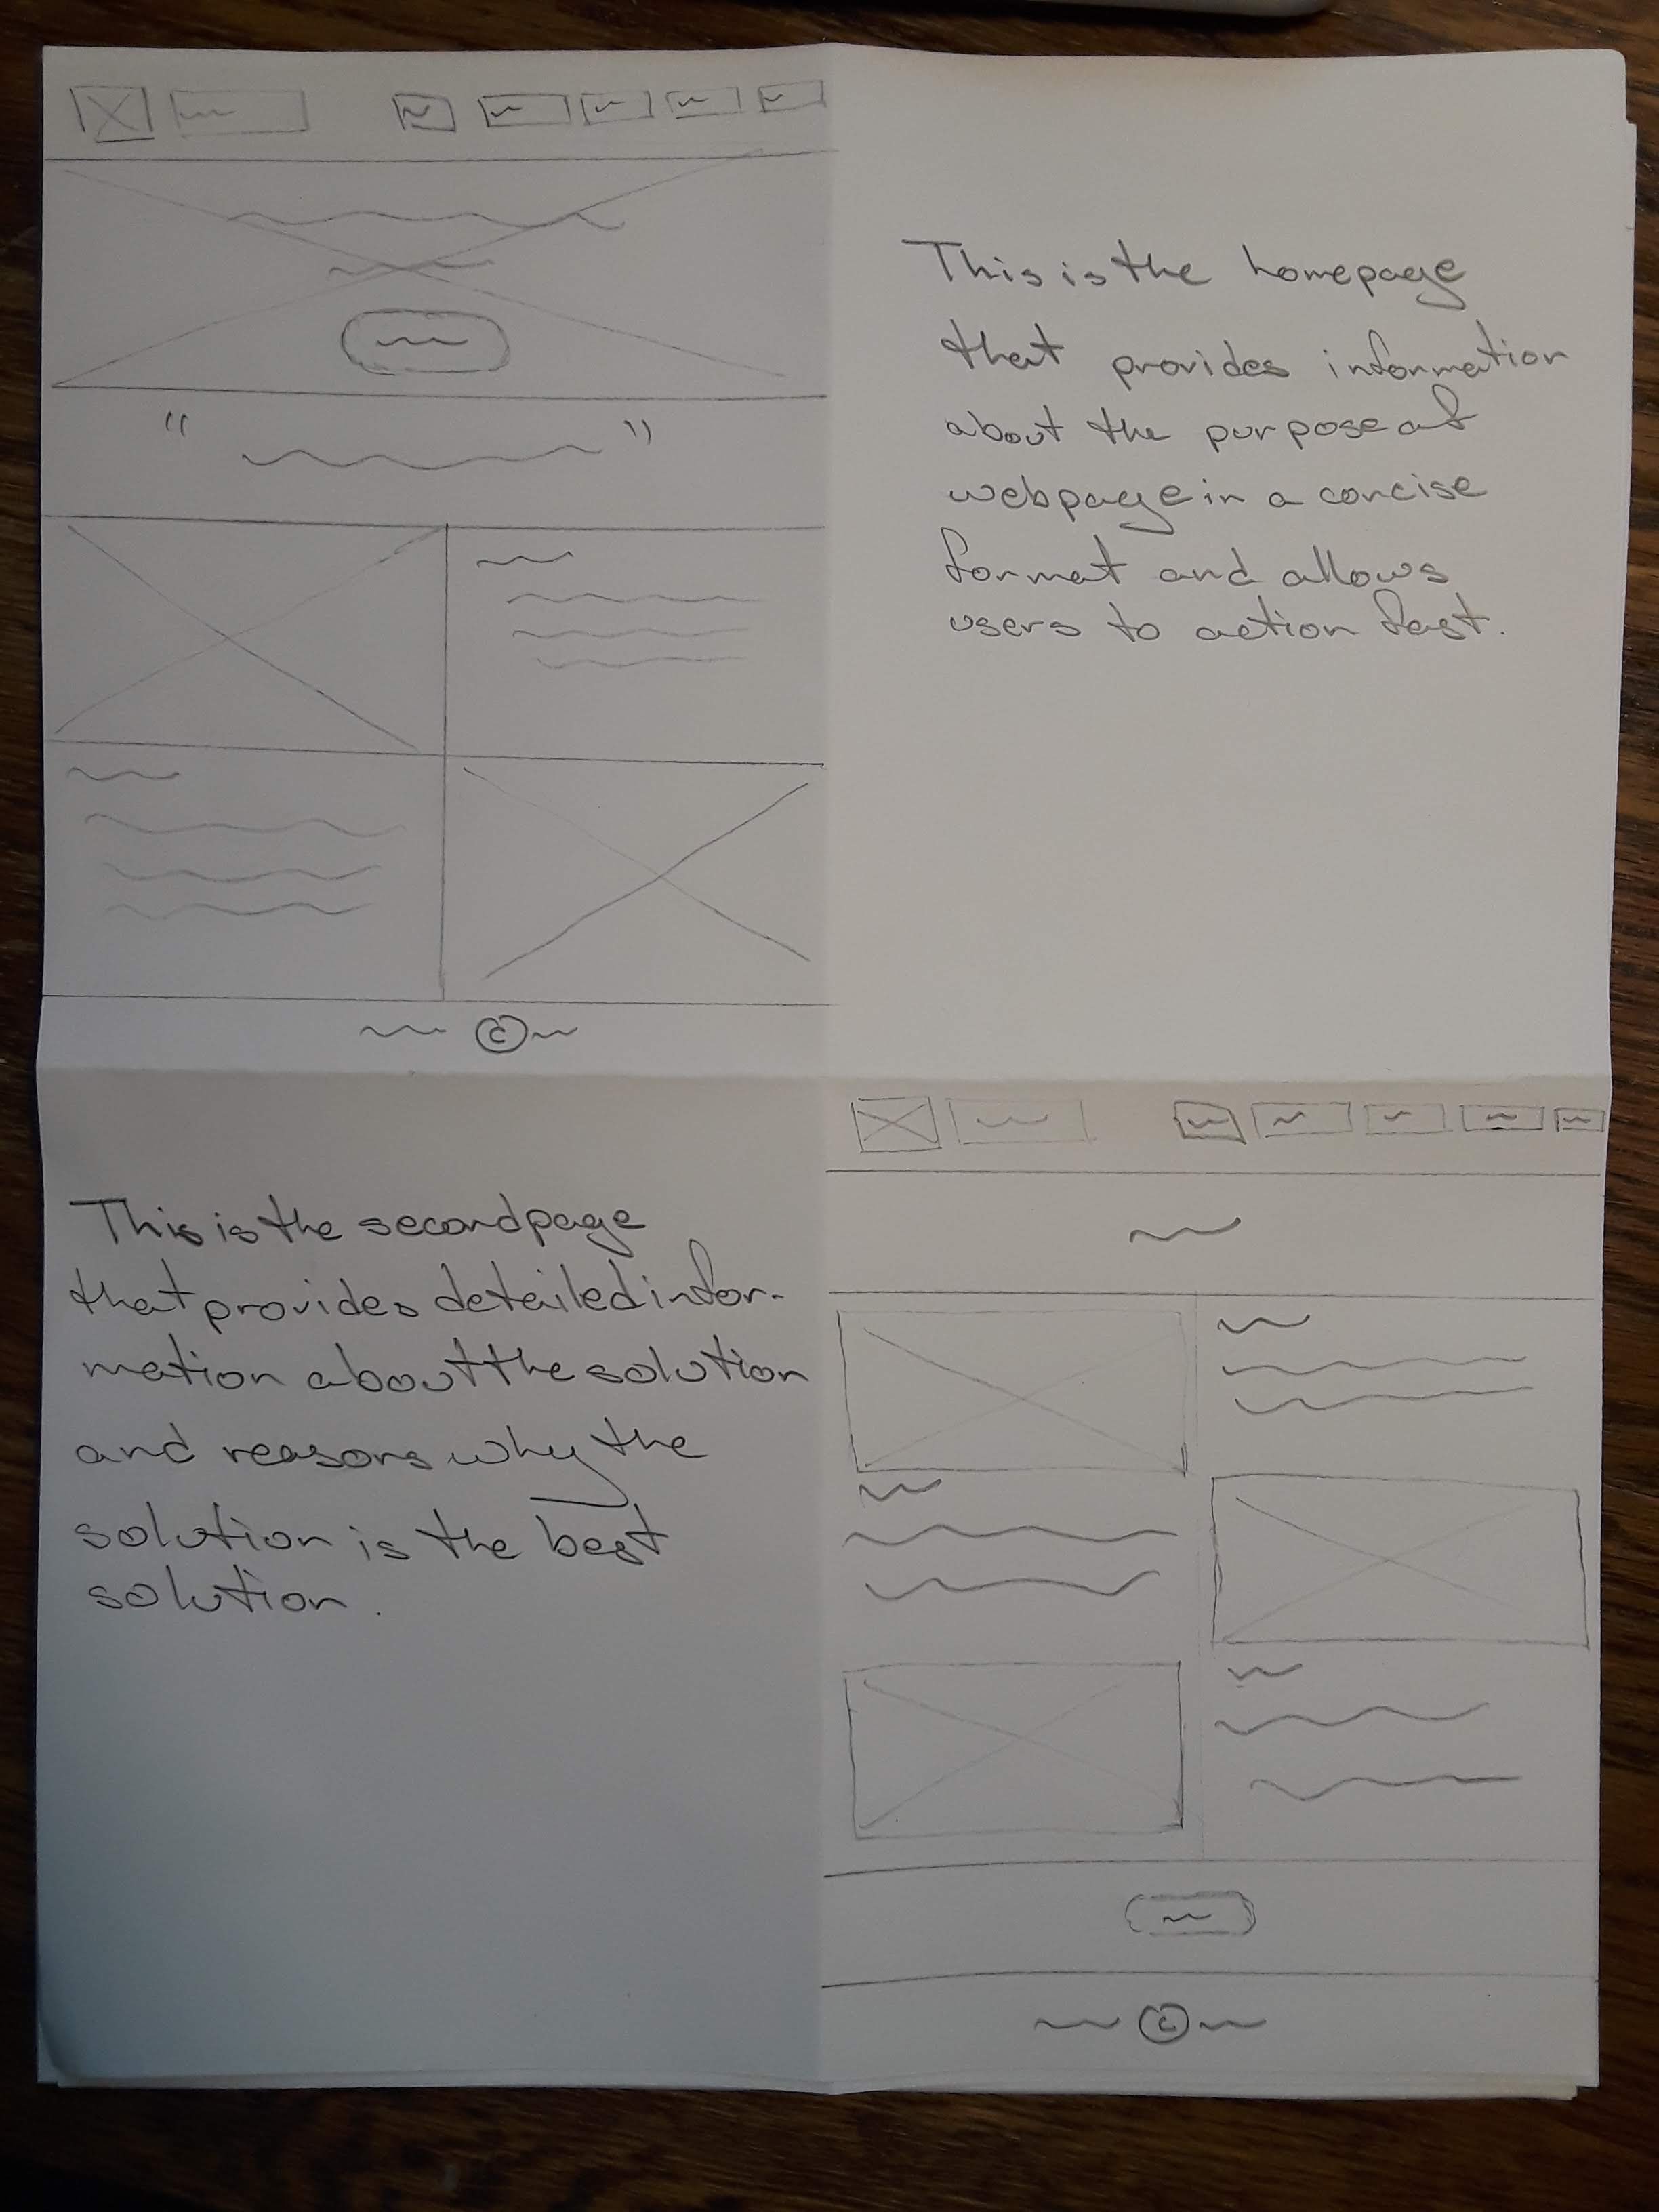 This is the homepage
that provides information
about the purpose of
webpage in a concise
format and allows
users to action fast.
©
This is the second page
that provides detailed infor-
mation about the solution
and reasons why the
solution is the best
solution.
©